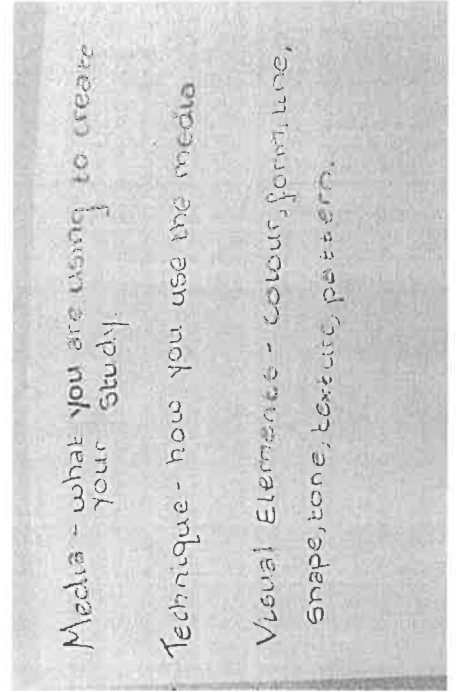 Media - what you are using to create
your study.
Technique - how you use the media
Visual Elements - colour, form, line,
shape, tone, texture, pattern.